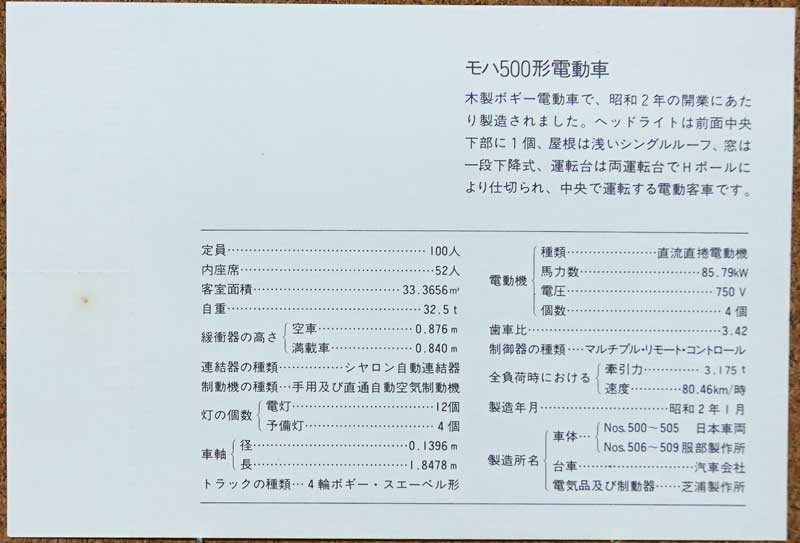 モハ500形電動車
木製ボギー電動車で、昭和2年の開業にあた
り製造されました。ヘッドライトは前面中央
下部に1個、屋根は浅いシングルルーフ、窓は
一段下降式、運転台は両運転台でHポールに
より仕切られ、中央で運転する電動客車です。
定員……………100人
内座席……………52人
客室面積……………33.3656㎡
自重……………32.5t
緩衝器の高さ
空車……………0.876m
満載車……………0.840m
連結器の種類……シャロン自動連結器
制動機の種類…手用及び直通自動空気制動機
灯の個数
電灯……………12個
予備灯……………4個
車軸
径……………0.1396m
長……………1.8478m
トラックの種類…4輪ボギー・スエーベル形
電動機
種類……………直流直捲電動機
馬力数……………85.79kW
電圧……………750V
個数……………4個
歯車比……………3.42
制御器の種類…マルチプル・リモート・コントロール
全負荷時における
牽引力……………3.175t
速度……………80.46km/時
製造年月……………昭和2年1月
製造所名
車体…
Nos.500~505 日本車両
Nos.506~509 服部製作所
台車……………汽車会社
電気品及び制動器……芝浦製作所